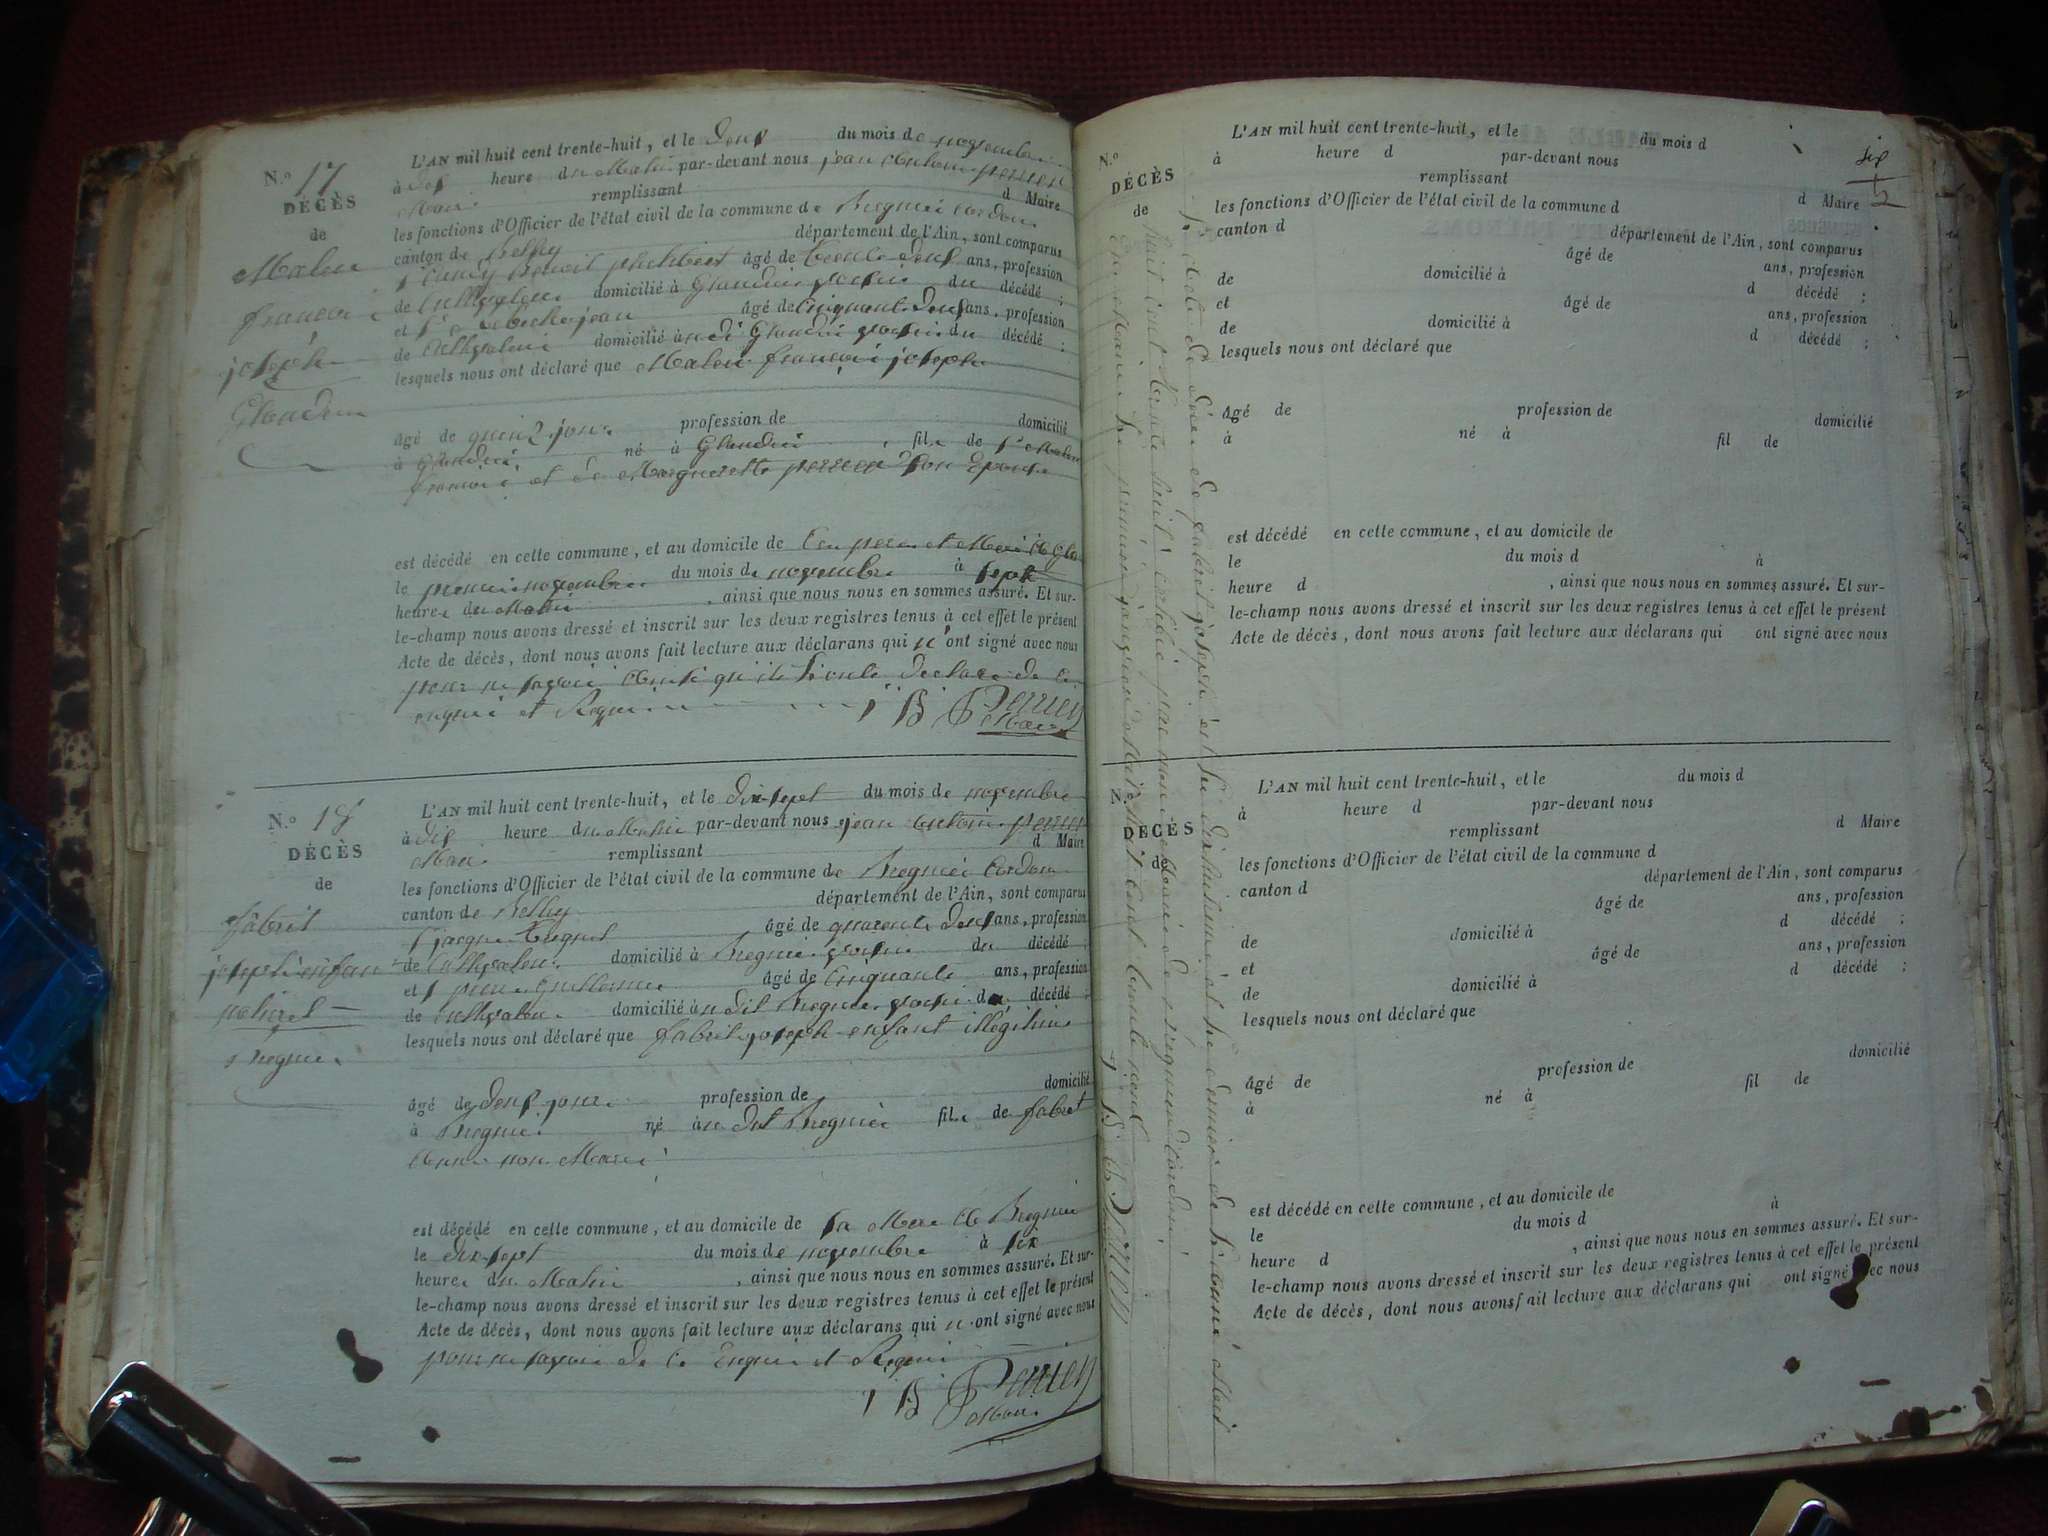 N.° 17
DÉCÈS
de
Malen
françois
joseph
Glandieu
L'AN mil huit cent trente-huit, et le deux du mois de novembre
à dix heure du Matin par-devant nous jean Antoine perrier
Maire remplissant d Maire
les fonctions d'Officier de l'état civil de la commune de Bregnier Cordon
canton de Belley département de l'Ain, sont comparus
Benoit philibert âgé de trente deux ans, profession
de Cultivateur domicilié à Glandieu voisin du décédé ;
et jean âgé de Cinquante deux ans, profession
de Cultivateur domicilié à Glandieu voisin du décédé ;
lesquels nous ont déclaré que Malen françois joseph
âgé de quinze jours profession de domicilié
à Glandieu né à Glandieu, fils de Sr Malen
françois et de Marguerette perrier Son Epouse
est décédé en cette commune, et au domicile de
le premier novembre du mois de novembre à sept
heures du Matin, ainsi que nous nous en sommes assuré. Et sur-
le-champ nous avons dressé et inscrit sur les deux registres tenus à cet effet le présent
Acte de décès, dont nous avons fait lecture aux déclarans qui n'ont signé avec nous
pour ne savoir de ce
enquis et Requis
Perrier
Maire
N.° 18
DÉCÈS
de
fabrit
joseph enfant
naturel
Bregnier
L'AN mil huit cent trente-huit, et le dix-sept du mois de novembre
à dix heure du Matin par-devant nous jean Antoine perrier
Maire remplissant d Maire
les fonctions d'Officier de l'état civil de la commune de Bregnier Cordon
canton de Belley département de l'Ain, sont comparus
jacque âgé de quarente deux ans, profession
de Cultivateur domicilié à Bregnier voisin du décédé ;
et âgé de Cinquante ans, profession
de Cultivateur domicilié au dit Bregnier voisin du décédé ;
lesquels nous ont déclaré que fabrit joseph enfant illégitime
âgé de deux jours profession de domicilié
à Bregnier né au dit Bregnier fils de fabrit
Anne non Marié
est décédé en cette commune, et au domicile de Sa Mere à Bregnier
le dix-sept du mois de novembre à six
heures du Matin, ainsi que nous nous en sommes assuré. Et sur-
le-champ nous avons dressé et inscrit sur les deux registres tenus à cet effet le présent
Acte de décès, dont nous avons fait lecture aux déclarans qui n'ont signé avec nous
pour ne savoir de ce Enquis et Requis
Perrier
Maire
N.°
DÉCÈS
de
L'AN mil huit cent trente-huit, et le du mois d
à heure d par-devant nous
remplissant d Maire
les fonctions d'Officier de l'état civil de la commune d
canton d département de l'Ain, sont comparus
âgé de ans, profession
de domicilié à d décédé ;
et âgé de ans, profession
de domicilié à d décédé ;
lesquels nous ont déclaré que
âgé de profession de domicilié
à né à fil de
est décédé en cette commune, et au domicile de
le du mois d à
heure d , ainsi que nous nous en sommes assuré. Et sur-
le-champ nous avons dressé et inscrit sur les deux registres tenus à cet effet le présent
Acte de décès, dont nous avons fait lecture aux déclarans qui ont signé avec nous
DÉCÈS
de
L'AN mil huit cent trente-huit, et le du mois d
à heure d par-devant nous
remplissant d Maire
les fonctions d'Officier de l'état civil de la commune d
canton d département de l'Ain, sont comparus
âgé de ans, profession
de domicilié à d décédé ;
et âgé de ans, profession
de domicilié à d décédé ;
lesquels nous ont déclaré que
âgé de profession de domicilié
à né à fil de
est décédé en cette commune, et au domicile de
le du mois d à
heure d , ainsi que nous nous en sommes assuré. Et sur-
le-champ nous avons dressé et inscrit sur les deux registres tenus à cet effet le présent
Acte de décès, dont nous avons fait lecture aux déclarans qui ont signé avec nous
de fabrit joseph est le dixhuitième et le dernier de l'année
huit cent trente huit par nous Maire de
le premier janvier mil huit cent trente neuf
Perrier